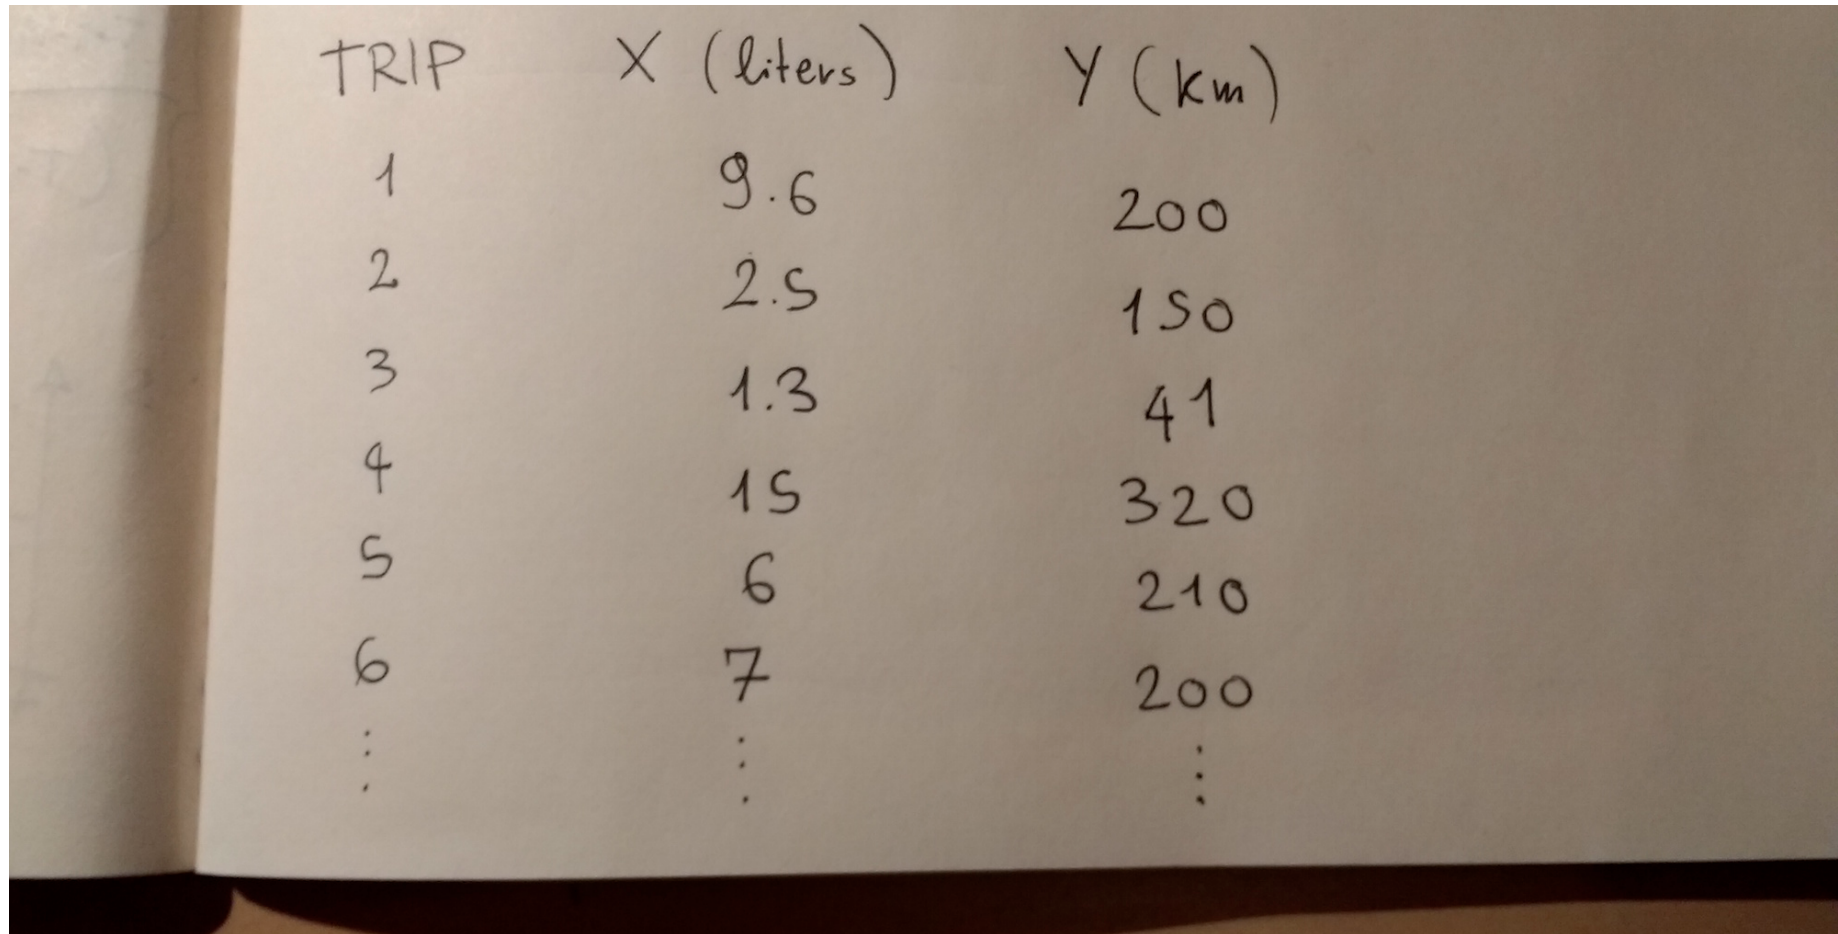 TRIP X (liters) Y (km)
1 9.6 200
2 2.5 150
3 1.3 41
4 15 320
5 6 210
6 7 200
⋮ ⋮ ⋮